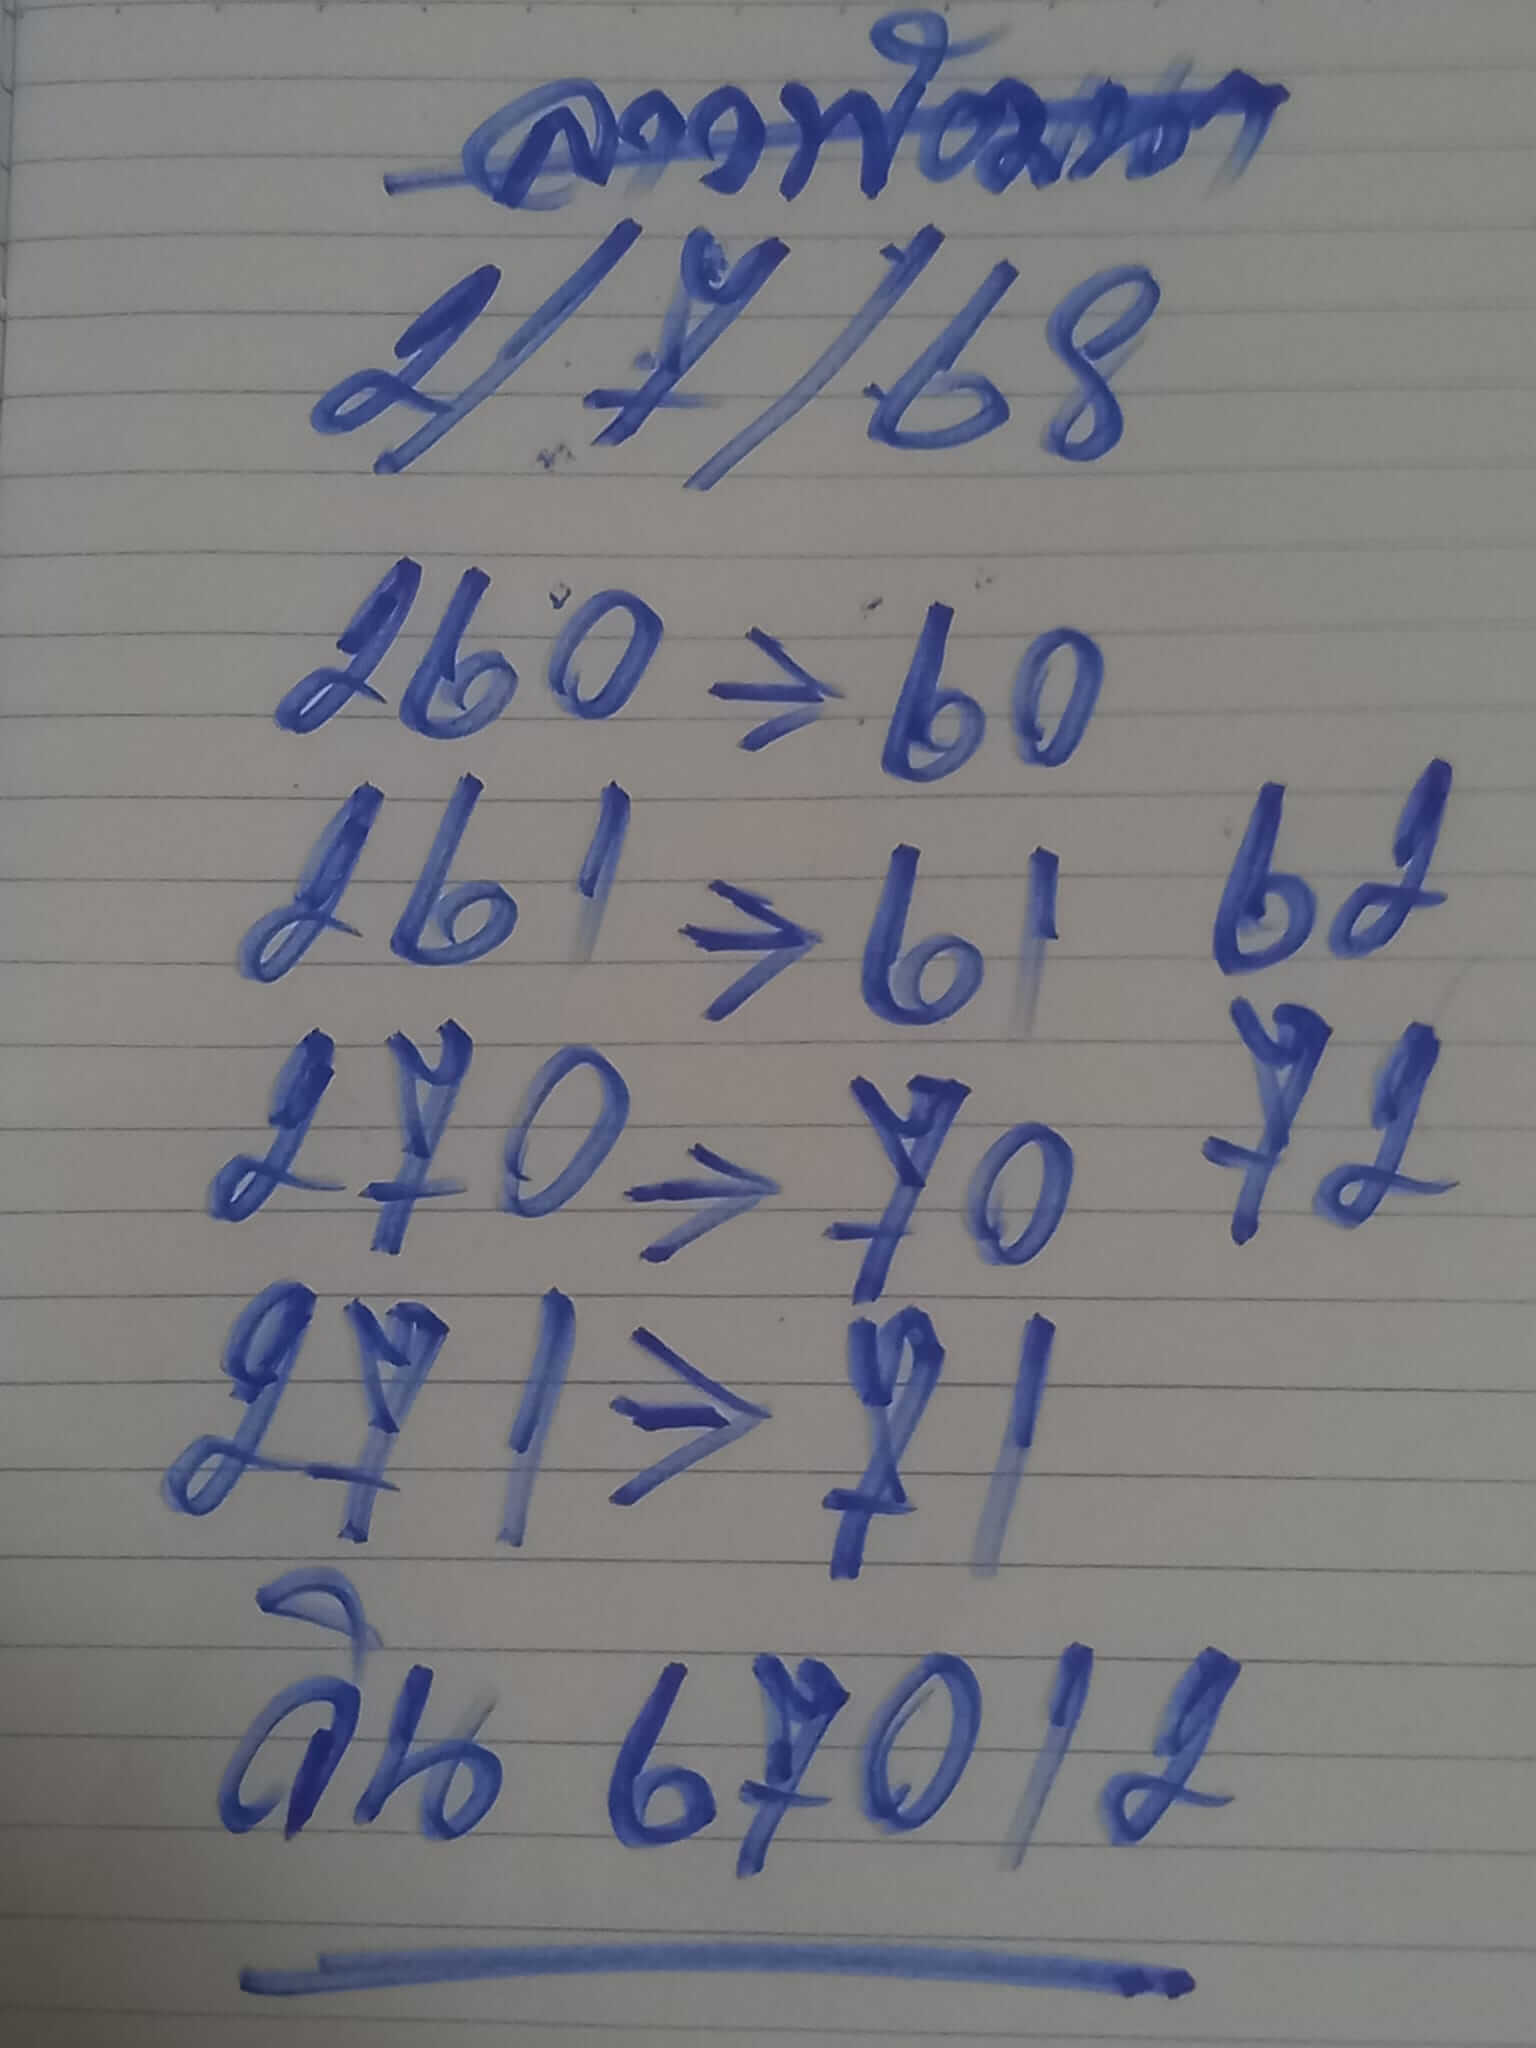 ลาวพัฒนา
2/7/68
260 → 60
261 → 61 62
270 → 70 72
271 → 71
วิน 67012